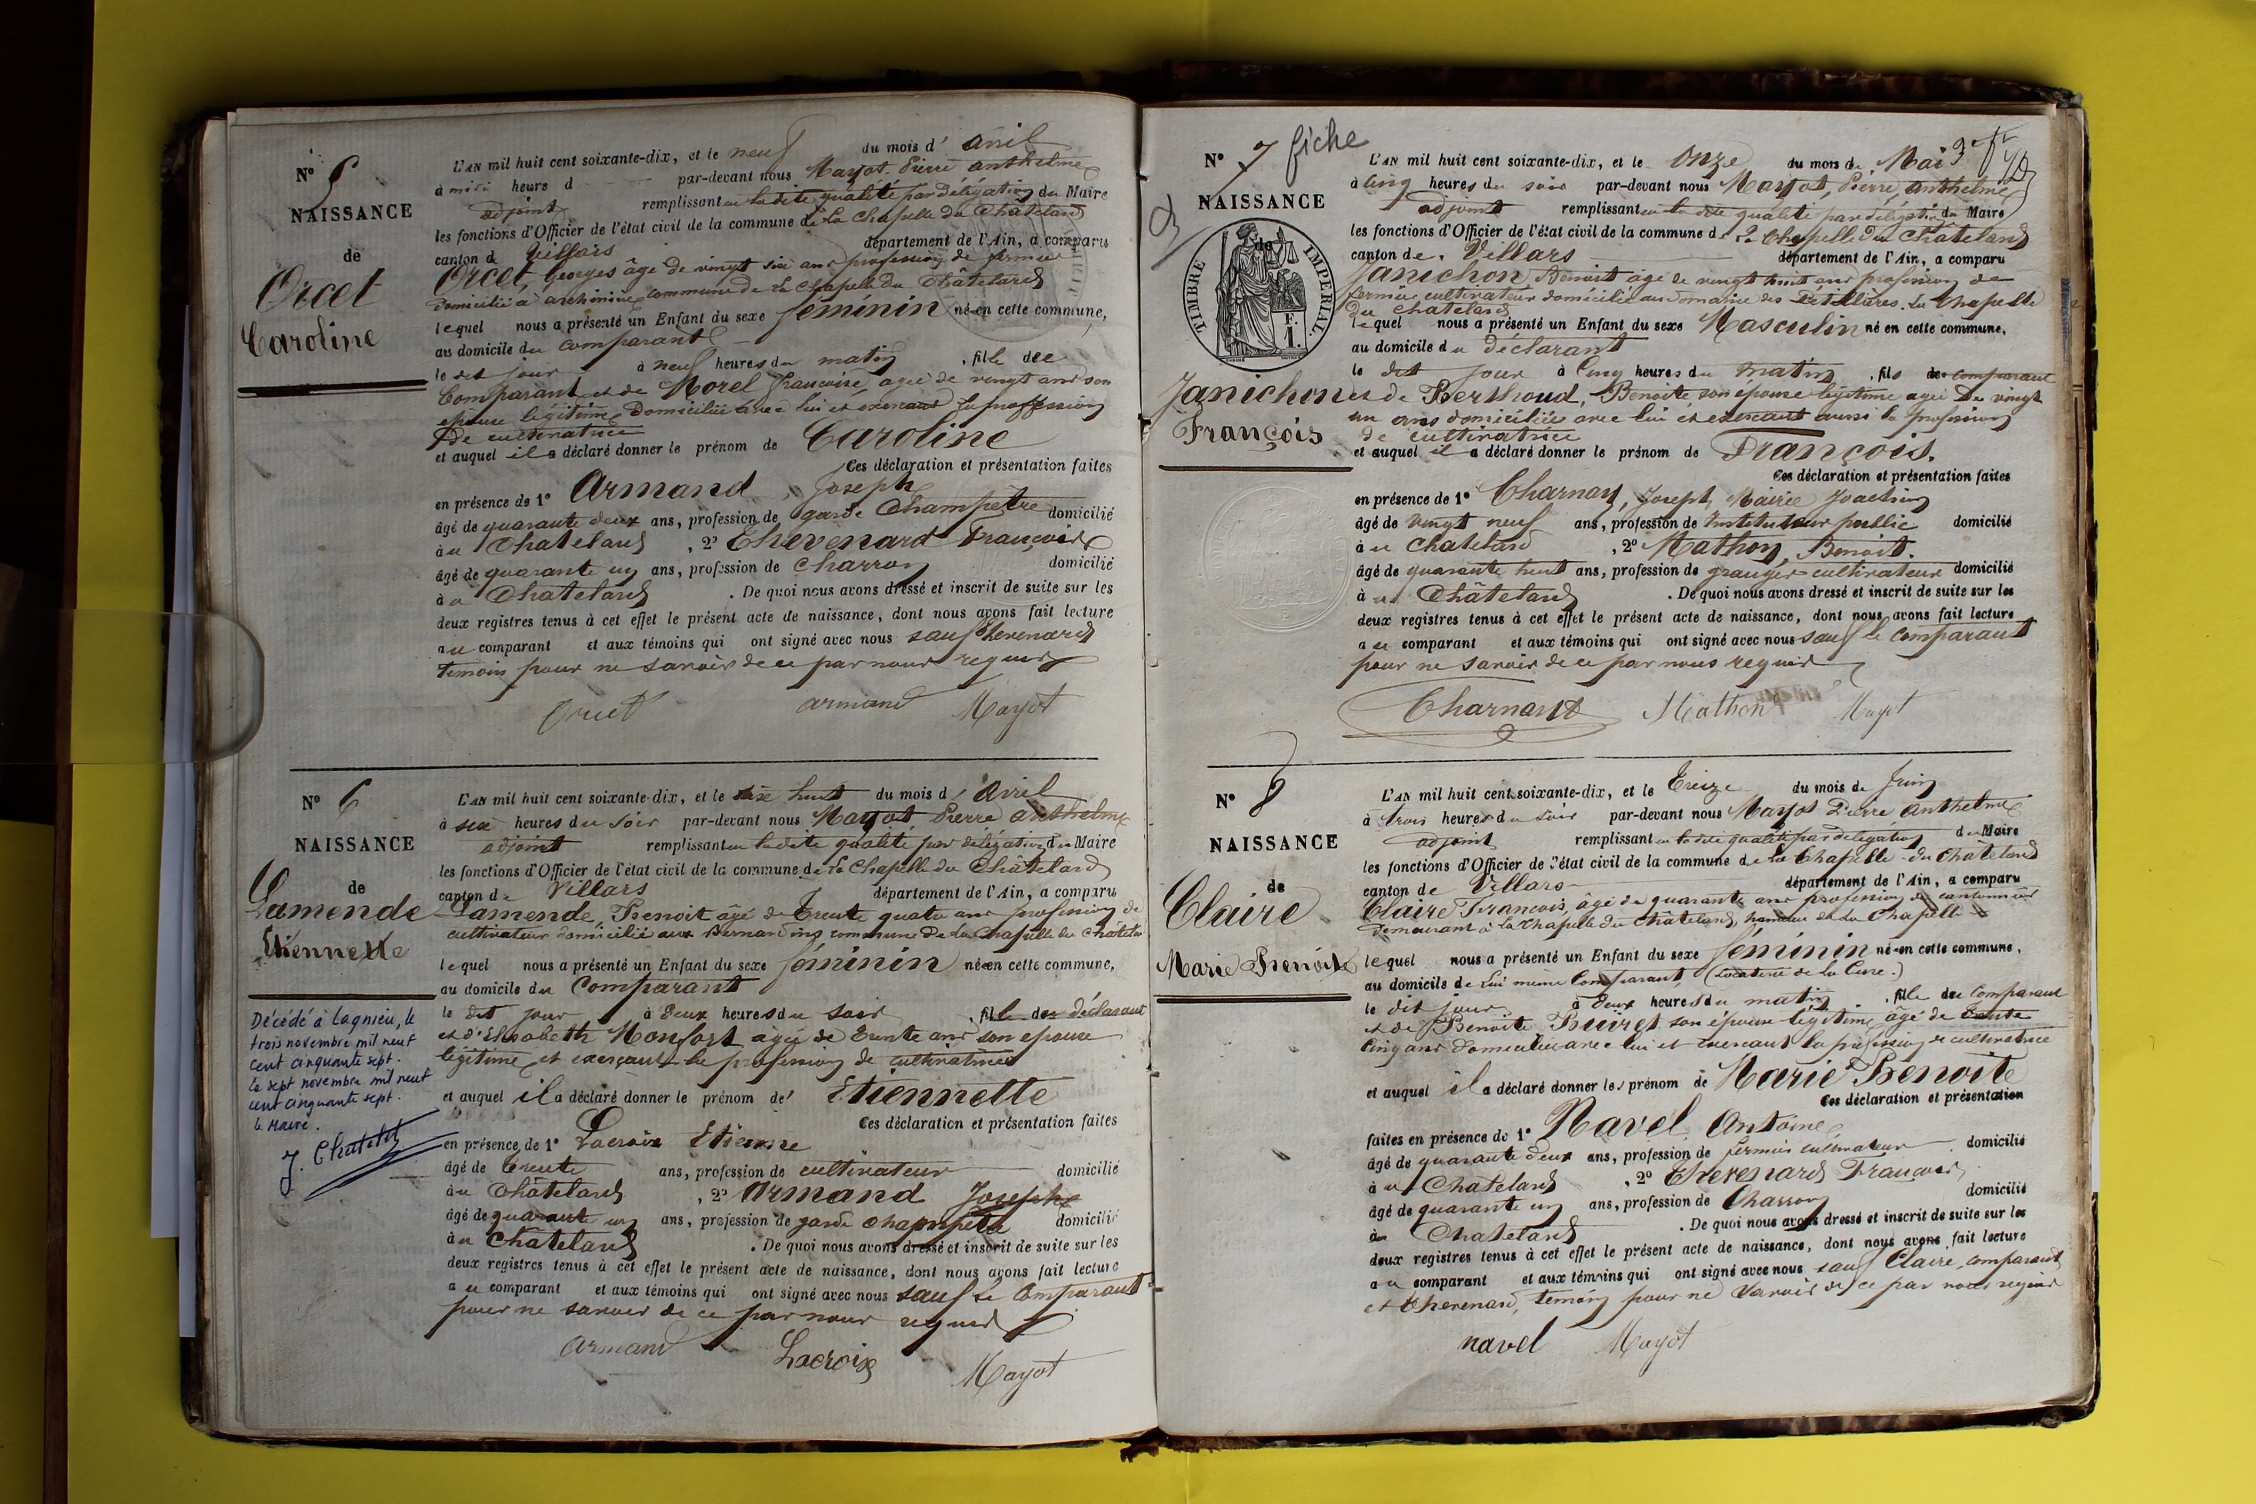 N° 5
NAISSANCE
de
Orcet
Caroline
L'AN mil huit cent soixante-dix, et le neuf du mois d' avril
à midi heure d par-devant nous Mayot Pierre anthelme
adjoint remplissant en la dite qualité par délégation du Maire
les fonctions d'Officier de l'état civil de la commune de La Chapelle du Châteland
canton de Villars département de l'Ain, a comparu
Orcet Georges âgé de vingt six ans profession de fermier
domicilié à commune de La Chapelle du Châteland
lequel nous a présenté un Enfant du sexe féminin né en cette commune,
au domicile du comparant
le dit jour à neuf heures du matin, fille de
Comparant et de Morel françoise, agée de vingt ans son
epouse légitime domiciliée avec lui et exercant la proffession
de cultivatrice
et auquel il a déclaré donner le prénom de Caroline
Ces déclaration et présentation faites
en présence de 1° Armand Joseph
âgé de quarante deux ans, profession de garde Champêtre domicilié
à u Chateland, 2° Chevenard François
âgé de quarante un ans, profession de Charron domicilié
à u Châteland. De quoi nous avons dressé et inscrit de suite sur les
deux registres tenus à cet effet le présent acte de naissance, dont nous avons fait lecture
au comparant et aux témoins qui ont signé avec nous sauf Chevenard
temoin pour ne savoir de ce par nous requis
Orcet armand Mayot
N° 6
NAISSANCE
de
Lamende
Etiennette
Décédé à Lagnieu, le
trois novembre mil neuf
cent cinquante sept.
Le sept novembre mil neuf
cent cinquante sept.
Le Maire.
J. Chatelet
L'AN mil huit cent soixante-dix, et le dix huit du mois d' Avril
à six heures du soir par-devant nous Mayot Pierre anthelme
adjoint remplissant en la dite qualité par délégation du Maire
les fonctions d'Officier de l'état civil de la commune de La Chapelle du Châteland
canton de Villars département de l'Ain, a comparu
Lamende, Benoit âgé de Trente quatre ans profession de
cultivateur domicilié aux Bernardins commune de La Chapelle du Chatelan
lequel nous a présenté un Enfant du sexe féminin né en cette commune,
au domicile du Comparant
le dit jour à deux heures du soir, fille des déclarant
et d'Elisabeth Monfort agée de trente ans son epouse
légitime et exerçant la profession de cultivatrice
et auquel il a déclaré donner le prénom de Etiennette
Ces déclaration et présentation faites
en présence de 1° Lacroix Etienne
âgé de trente ans, profession de cultivateur domicilié
à u Châteland, 2° Armand Joseph
âgé de quarante un ans, profession de garde champêtre domicilié
à u Châteland. De quoi nous avons dressé et inscrit de suite sur les
deux registres tenus à cet effet le présent acte de naissance, dont nous avons fait lecture
au comparant et aux témoins qui ont signé avec nous sauf le Comparant
pour ne savoir de ce par nous requis
armand Lacroix Mayot
N° 7 fiche
NAISSANCE
de
TIMBRE IMPERIAL
F.
1.
Janichon
François
L'AN mil huit cent soixante-dix, et le Onze du mois de Mai
à Cinq heures du soir par-devant nous Mayot, Pierre, anthelme
adjoint remplissant en la dite qualité par délégation du Maire
les fonctions d'Officier de l'état civil de la commune de La Chapelle du Châteland
canton de Villars département de l'Ain, a comparu
Janichon Benoit âgé de vingt huit ans profession de
fermier cultivateur domicilié au domaine des La Chapelle
du Chateland
lequel nous a présenté un Enfant du sexe Masculin né en cette commune,
au domicile du déclarant
le dit jour à Cinq heures du matin, fils de comparant
et de Berthoud, Benoite son épouse légitime agée De vingt
un ans domiciliée avec lui et exercant aussi la profession
de cultivatrice
et auquel il a déclaré donner le prénom de François.
Ces déclaration et présentation faites
en présence de 1° Charnay, Joseph, Marie Joachim
âgé de vingt neuf ans, profession de Instituteur public domicilié
à u Chateland, 2° Mathon, Benoit.
âgé de quarante huit ans, profession de granger cultivateur domicilié
à u Châteland. De quoi nous avons dressé et inscrit de suite sur les
deux registres tenus à cet effet le présent acte de naissance, dont nous avons fait lecture
au comparant et aux témoins qui ont signé avec nous sauf le comparant
pour ne savoir de ce par nous requis
Charnay Mathon Mayot
N° 8
NAISSANCE
de
Claire
Marie Benoite
L'AN mil huit cent soixante-dix, et le Treize du mois de Juin
à trois heures du soir par-devant nous Mayot Pierre Anthelme
adjoint remplissant en la dite qualité par délégation du Maire
les fonctions d'Officier de l'état civil de la commune de La Chapelle du Châteland
canton de Villars département de l'Ain, a comparu
Claire François, âgé de quarante ans profession de cantonnier
demeurant à la Chapelle du Châteland, hameau de La Chapelle
lequel nous a présenté un Enfant du sexe féminin né en cette commune,
au domicile de Lui même Comparant, (Locaterie de la Cure.)
le dit jour à deux heures du matin, fille du Comparant
et de Benoite Buiret son épouse légitime âgé de trente
cinq ans domiciliée avec lui et exercant la profession de cultivatrice
et auquel il a déclaré donner les prénom de Marie Benoite
Ces déclaration et présentation
faites en présence de 1° Navel Antoine
âgé de quarante deux ans, profession de fermier cultivateur domicilié
à u Chateland, 2° Chevenard François
âgé de quarante un ans, profession de Charron domicilié
à u Chateland. De quoi nous avons dressé et inscrit de suite sur les
deux registres tenus à cet effet le présent acte de naissance, dont nous avons fait lecture
au comparant et aux témoins qui ont signé avec nous sauf Claire, comparant
et Chevenard, temoin pour ne savoir de ce par nous requis
navel Mayot